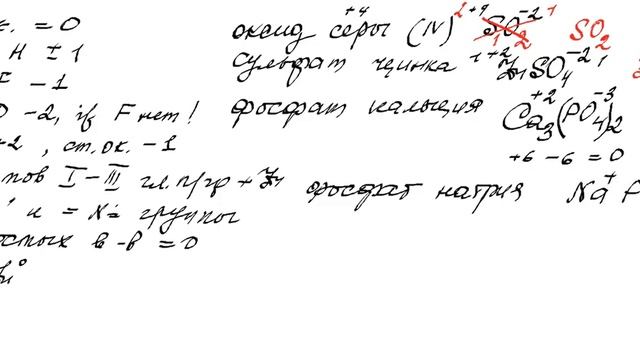 = 0
H ± 1
F - 1
O -2, if F нет!
+2, ст. ок. -1
I - III гл. п/гр + Zn
и = № группы
в - в = 0
оксид серы (IV) SO₂
+4
сульфат цинка ZnSO₄
фосфат кальция Ca₃(PO₄)₂
+6 -6 = 0
фосфат натрия Na⁺